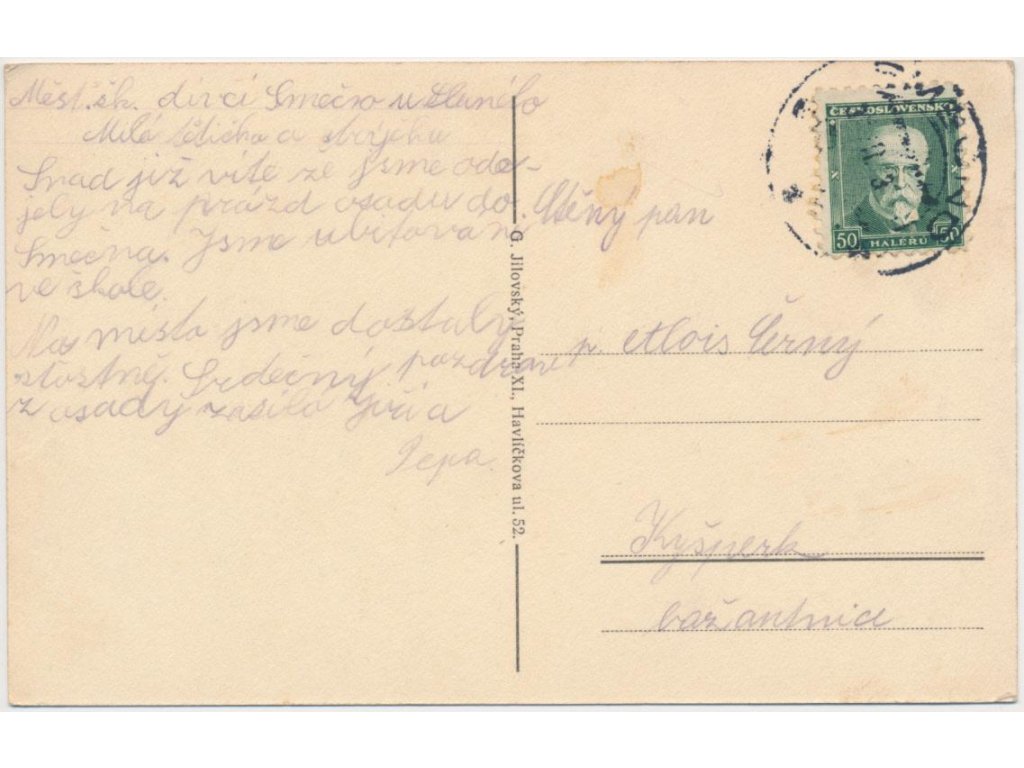 Měst. šk. dívčí Smečno u Slaného
Milá tetičko a strýčku
Snad již víte že jsme ode-
jely na prázd osadu do
Smečna. Jsme ubitováni
ve škole.
Na místo jsme dostaly
štastně. Srdečný pozdrav
z osady zasílá Jiří a
Pepa.
G. Jilovský, Praha XI., Havlíčkova ul. 52.
ČESKOSLOVENSKO
50 HALÉŘŮ 50
Ctěný pan
p. Alois Černý
Kyšperk
bažantnice